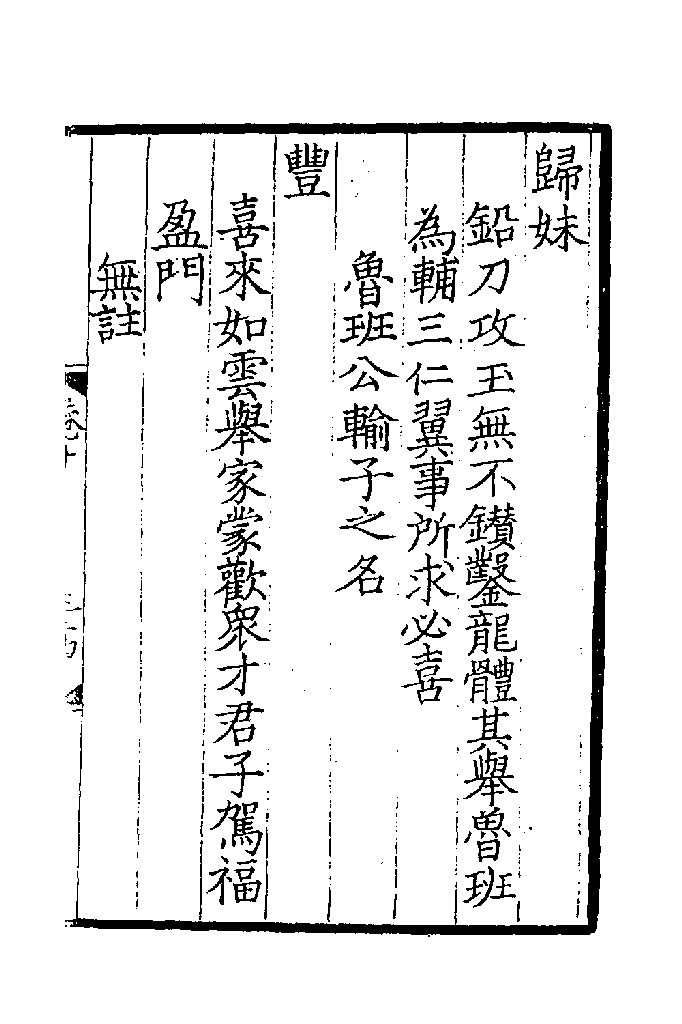 歸妹
鉛刀攻玉無不鑚鑿龍體其舉魯班
為輔三仁翼事所求必喜
魯班公輸子之名
豐
喜來如雲舉家蒙歡衆才君子駕福
盈門
無註